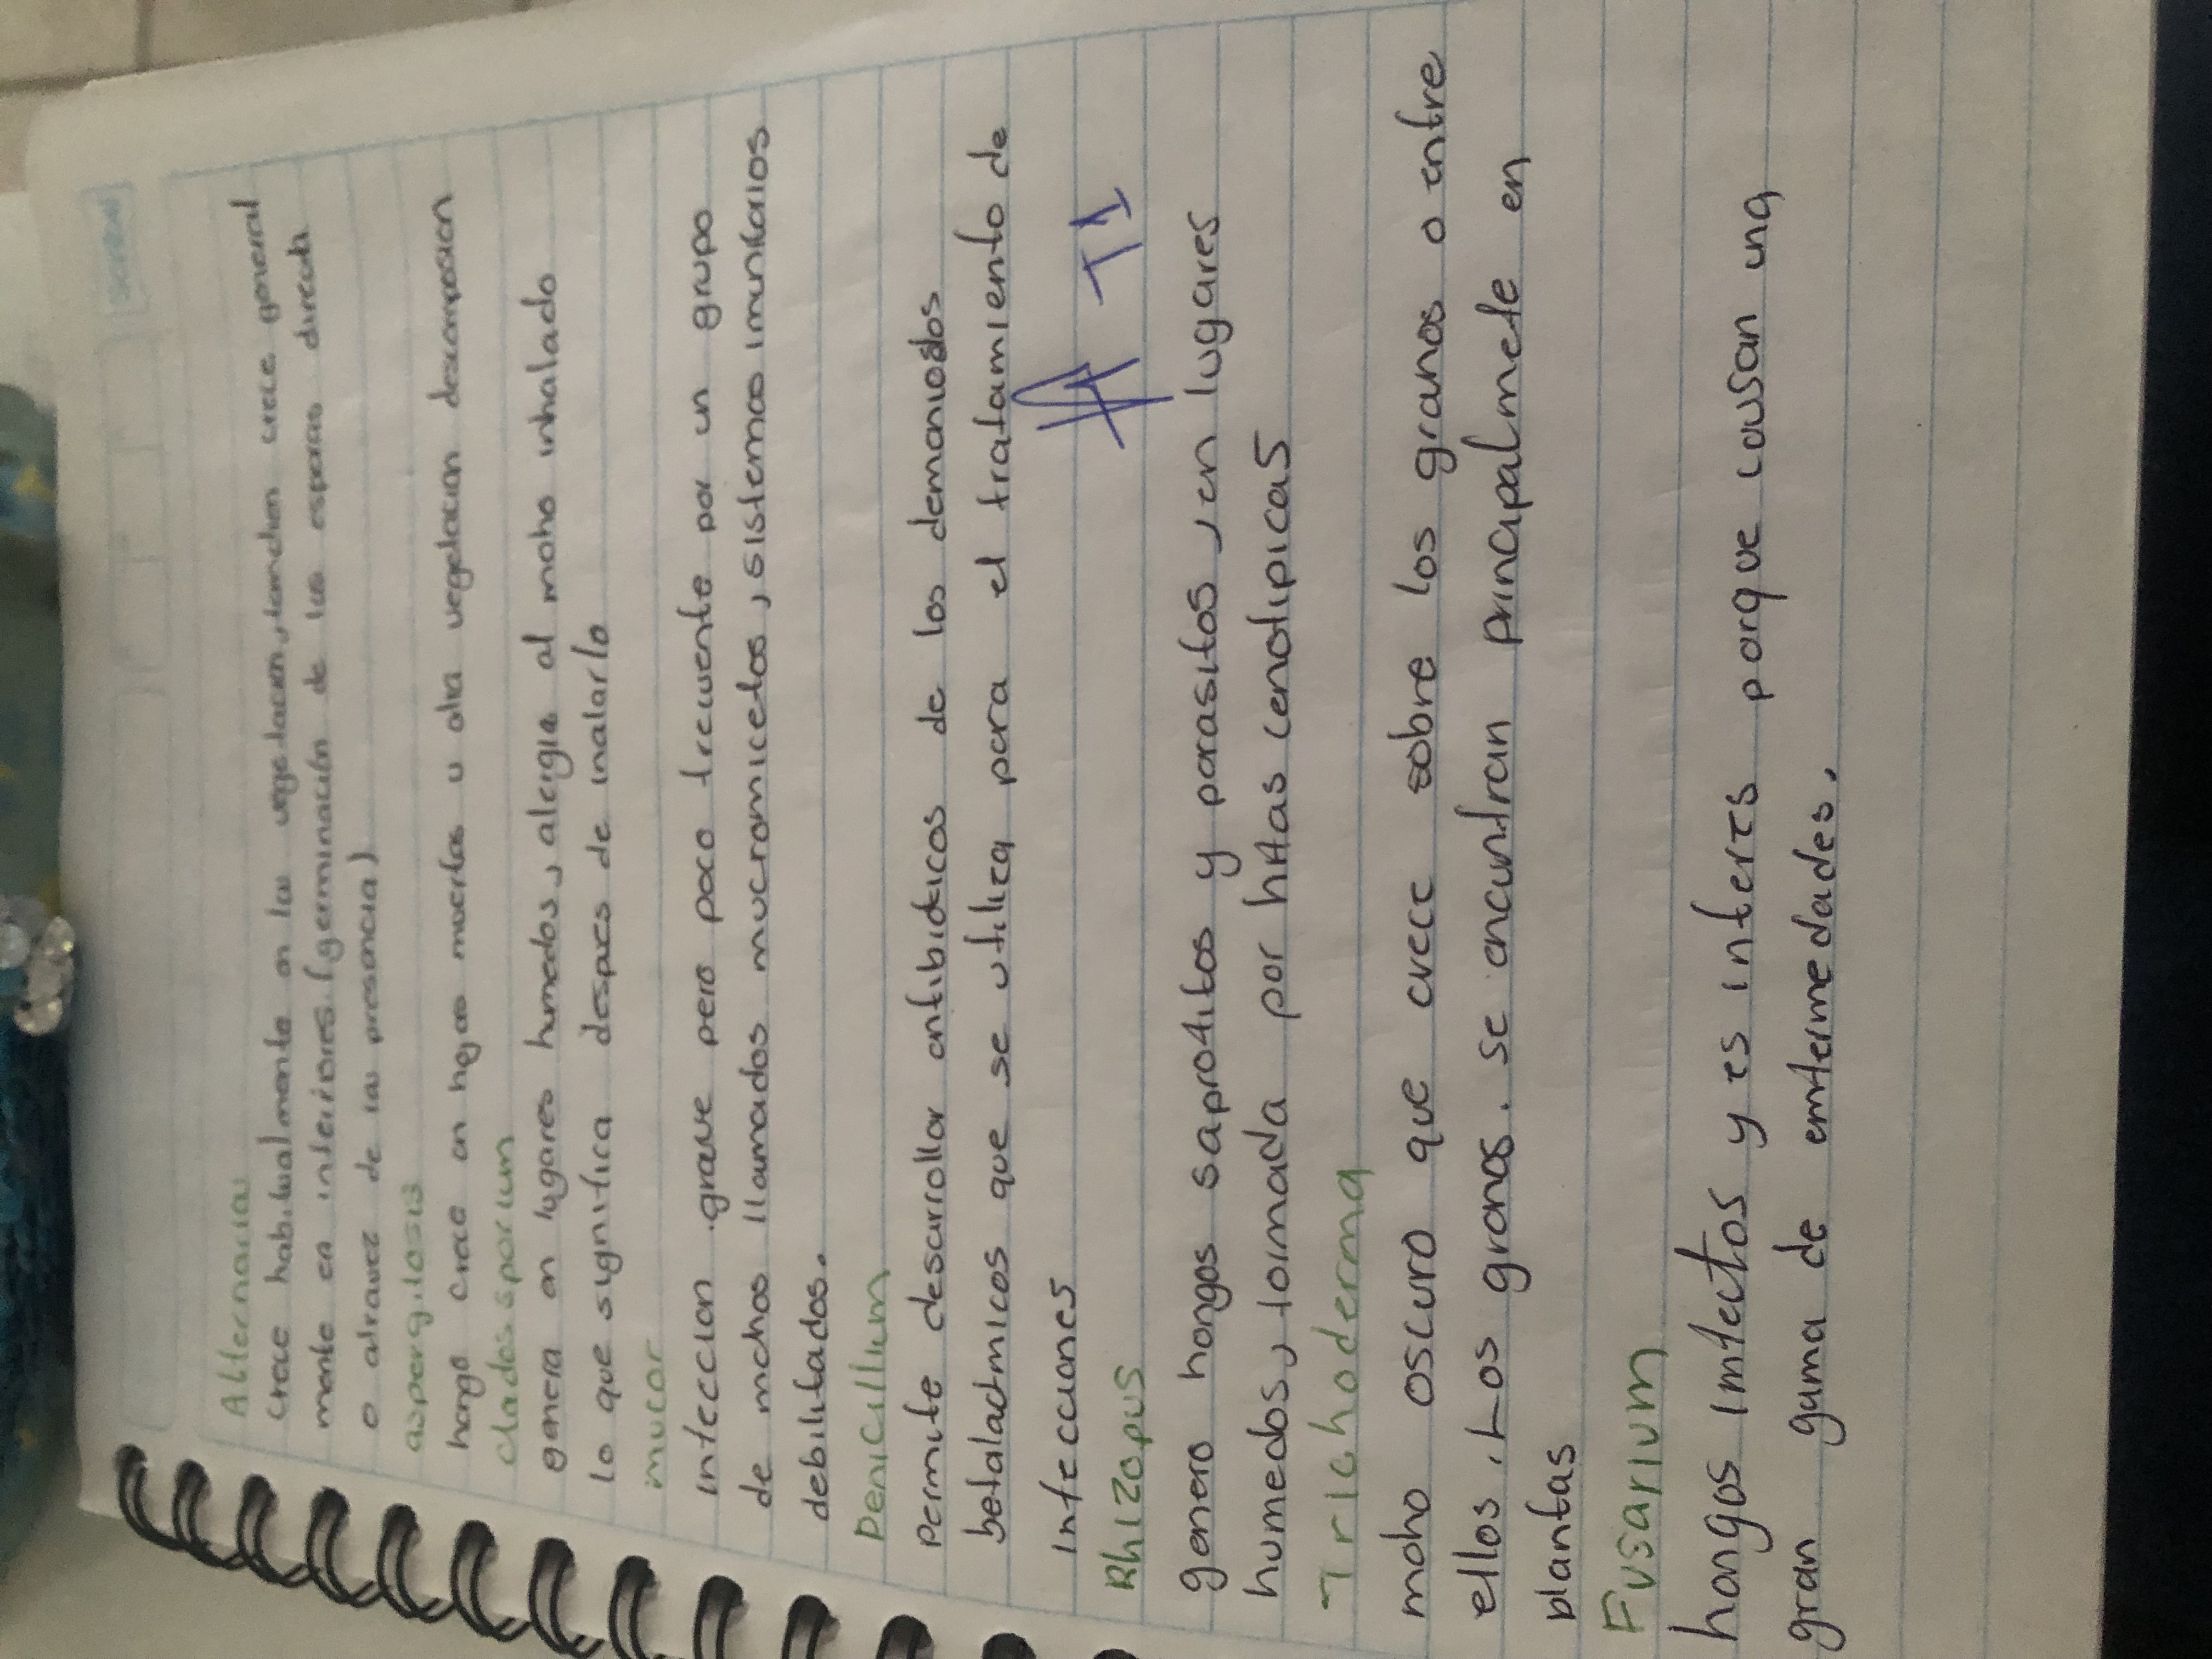 Alternaria
crece habitualmente en la vegetacion, tanchen crece general
mente en interiores. (germinación de las esporas directa
o atravez de la presencia)
aspergilosis
hongo crece en hojas muertas u otra vegetacion descomposicion
cladosporium
genera en lugares humedos, alergia al moho inhalado
lo que significa despues de inalarlo
mucor
infeccion grave pero poco frecuente por un grupo
de mohos llamados mucromicetos, sistemas imunitarios
debilitados.
Penicillium
Permite desarrollar antibioticos de los demaniados
betalactmicos que se utiliza para el tratamiento de
Infecciones
Rhizopus
genero hongos saprofitos y parasitos, en lugares
humedos, formada por hifas cenotipicas
Trichoderma
moho oscuro que crece sobre los granos o entre
ellos. Los granos. se encuntran principalmete en
plantas
Fusarium
hongos imfectos y es interes porque causan una
gran gama de emfermedades.